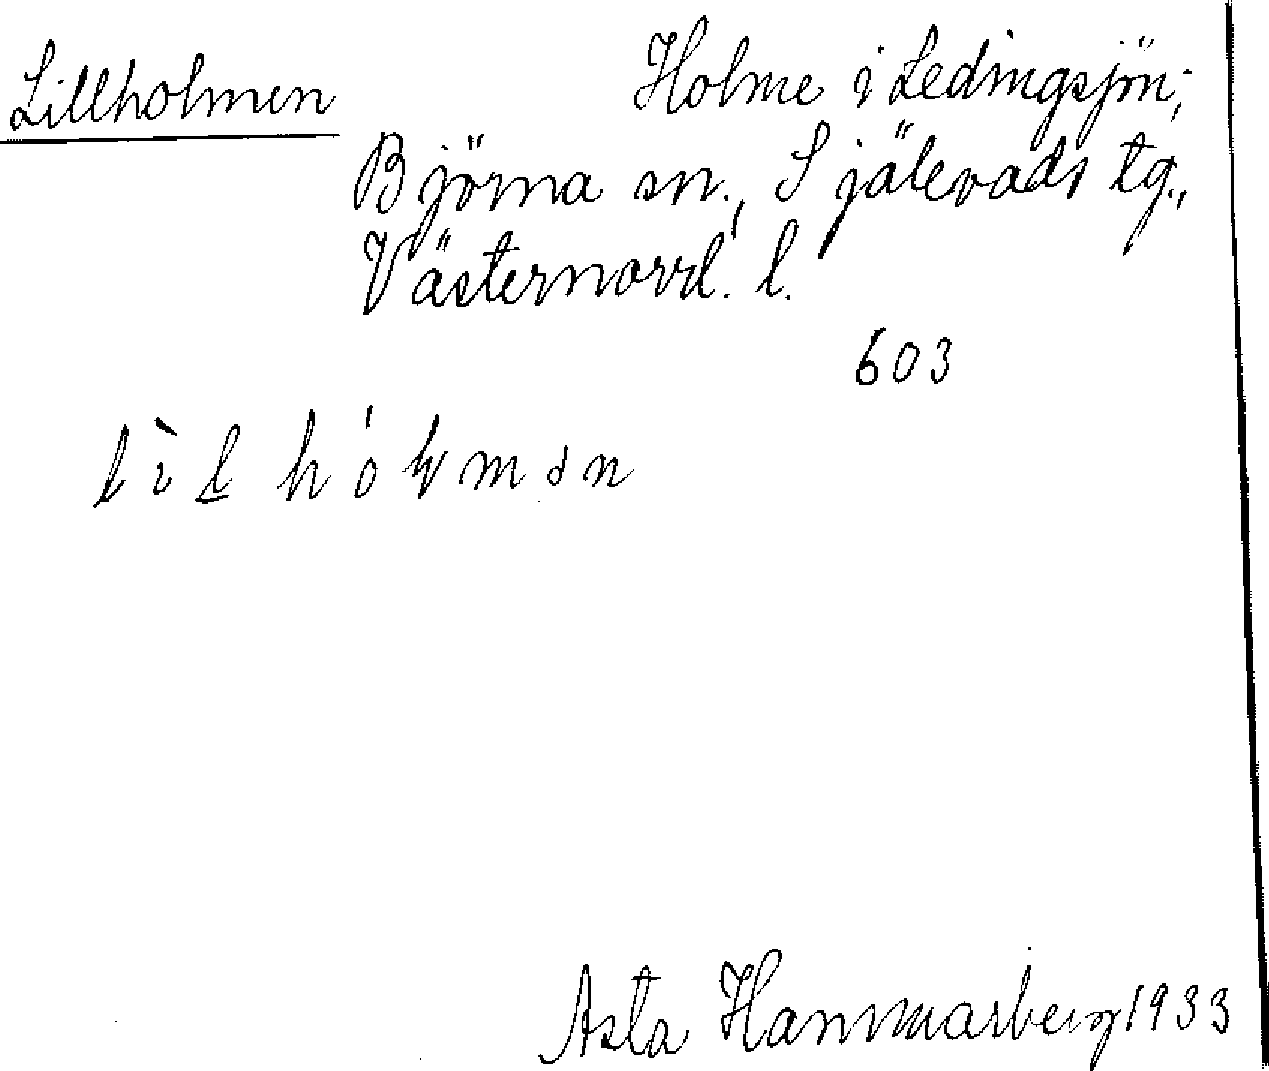 Lillholmen
Holme i Ledingsjön;
Björna sn., Själevads tg.,
Västernorrl. l.
603
Asta Hammarberg 1933